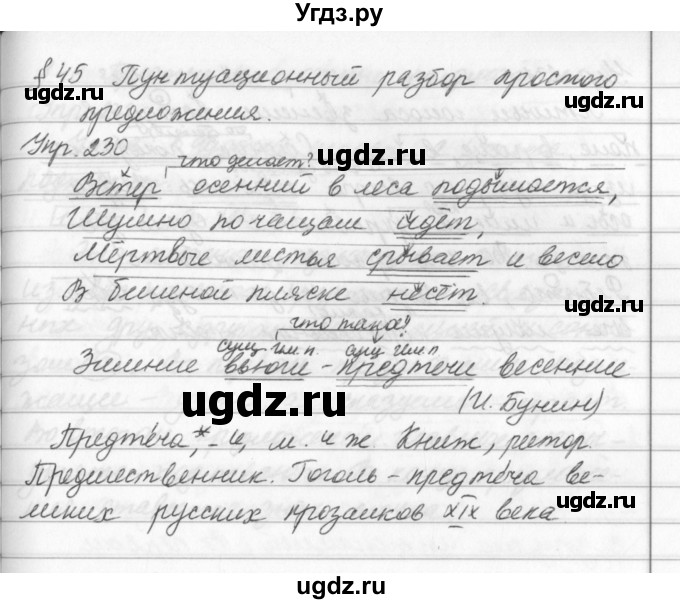 Угдз.ру
§ 45 Пунктуационный разбор простого
предложения.
Упр. 230 что делает?
ugdz.ru
Ветер осенний в леса подымается,
Шумно по чащам идёт,
Мёртвые листья срывает и весело
ugdz.ru
В бешеной пляске несёт.
что такое?
сущ. им. п. сущ им. п
Зимние вьюги – предтечи весенние
ugdz.ru
(И. Бунин)
Предтеча,* -и, м. и ж. Книж., ритор.
Предшественник. Гоголь – предтеча ве-
ugdz.ru
ликих русских прозаиков XIX века
ugdz.ru
ugdz.ru